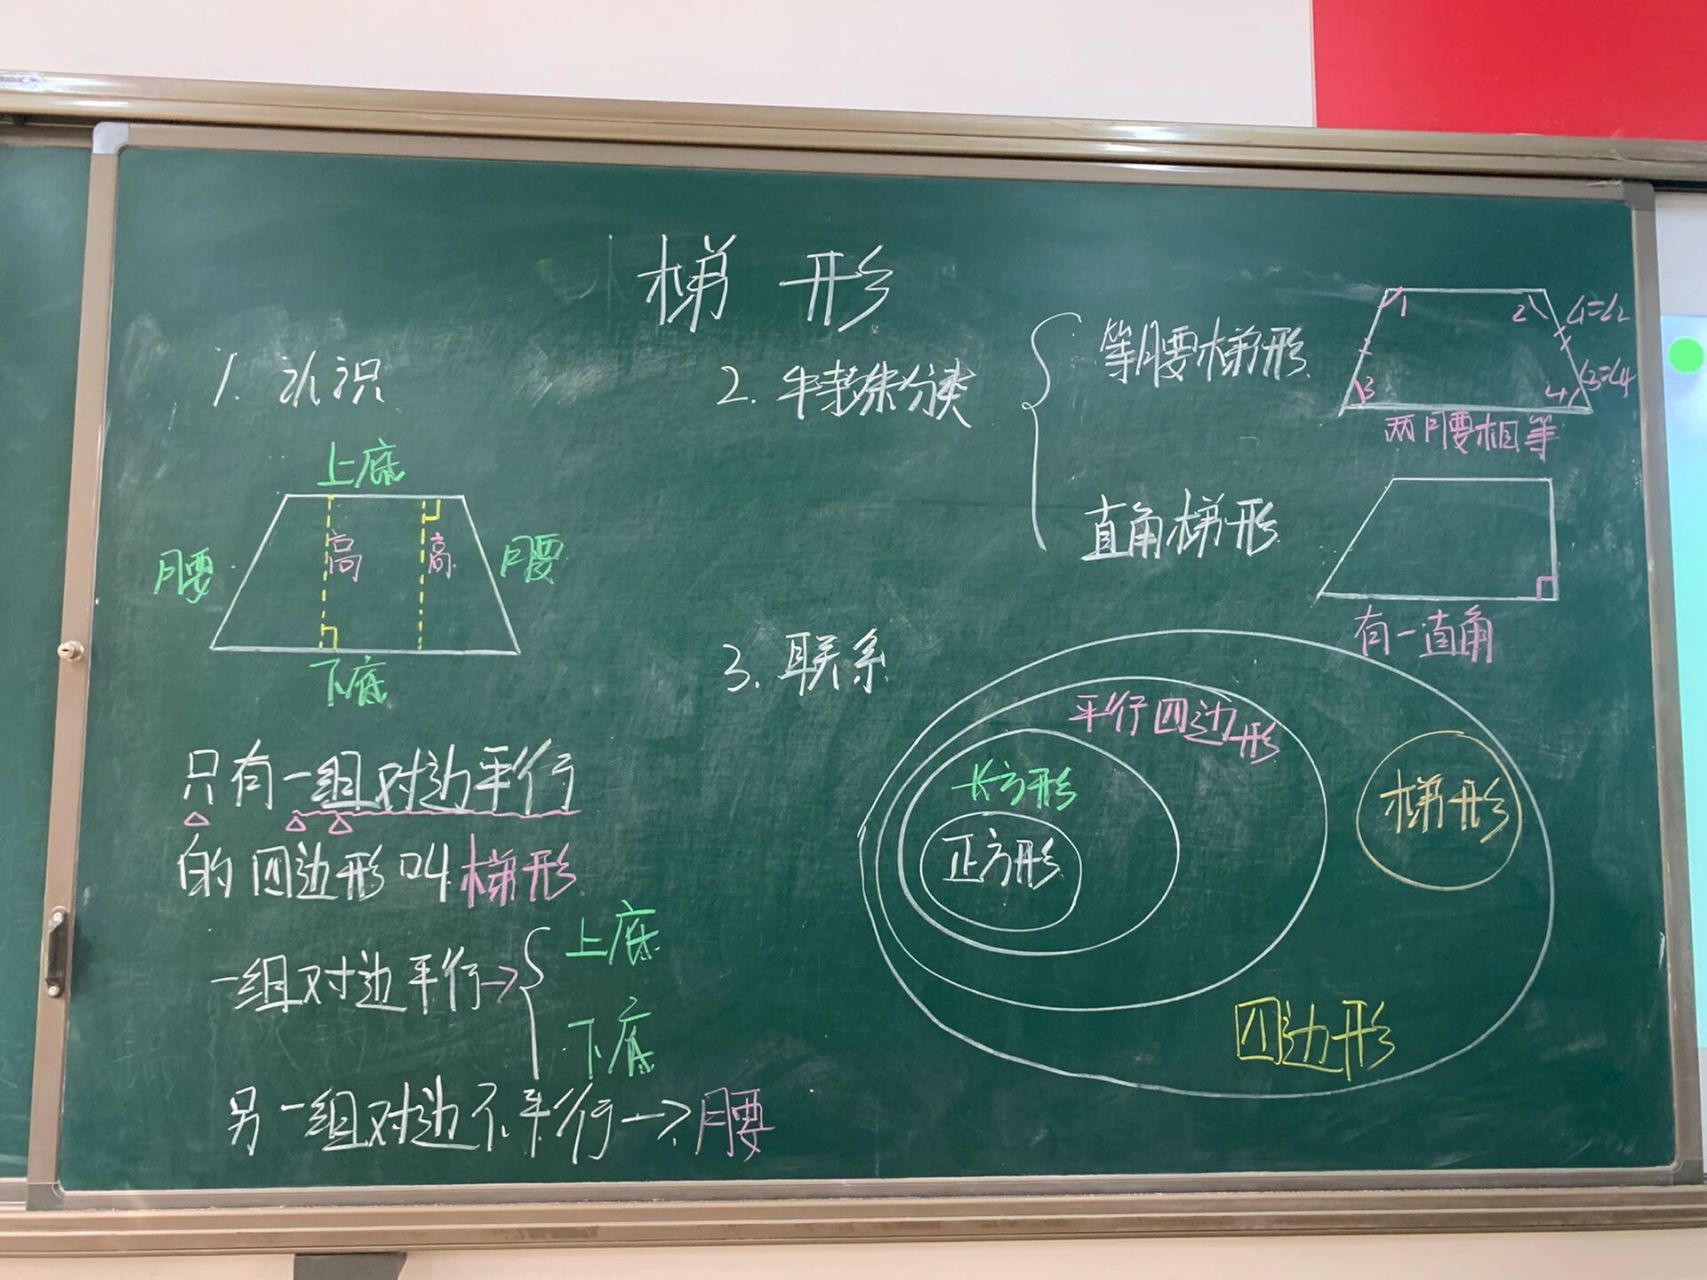 梯形
1. 认识
上底
腰
高
高
腰
下底
只有一组对边平行
的四边形叫梯形
一组对边平行→
上底
下底
另一组对边不平行→腰
2. 特殊分类
等腰梯形
1
2
3
4
∠1=∠2
∠3=∠4
两腰相等
直角梯形
有一直角
3. 联系
平行四边形
长方形
正方形
梯形
四边形